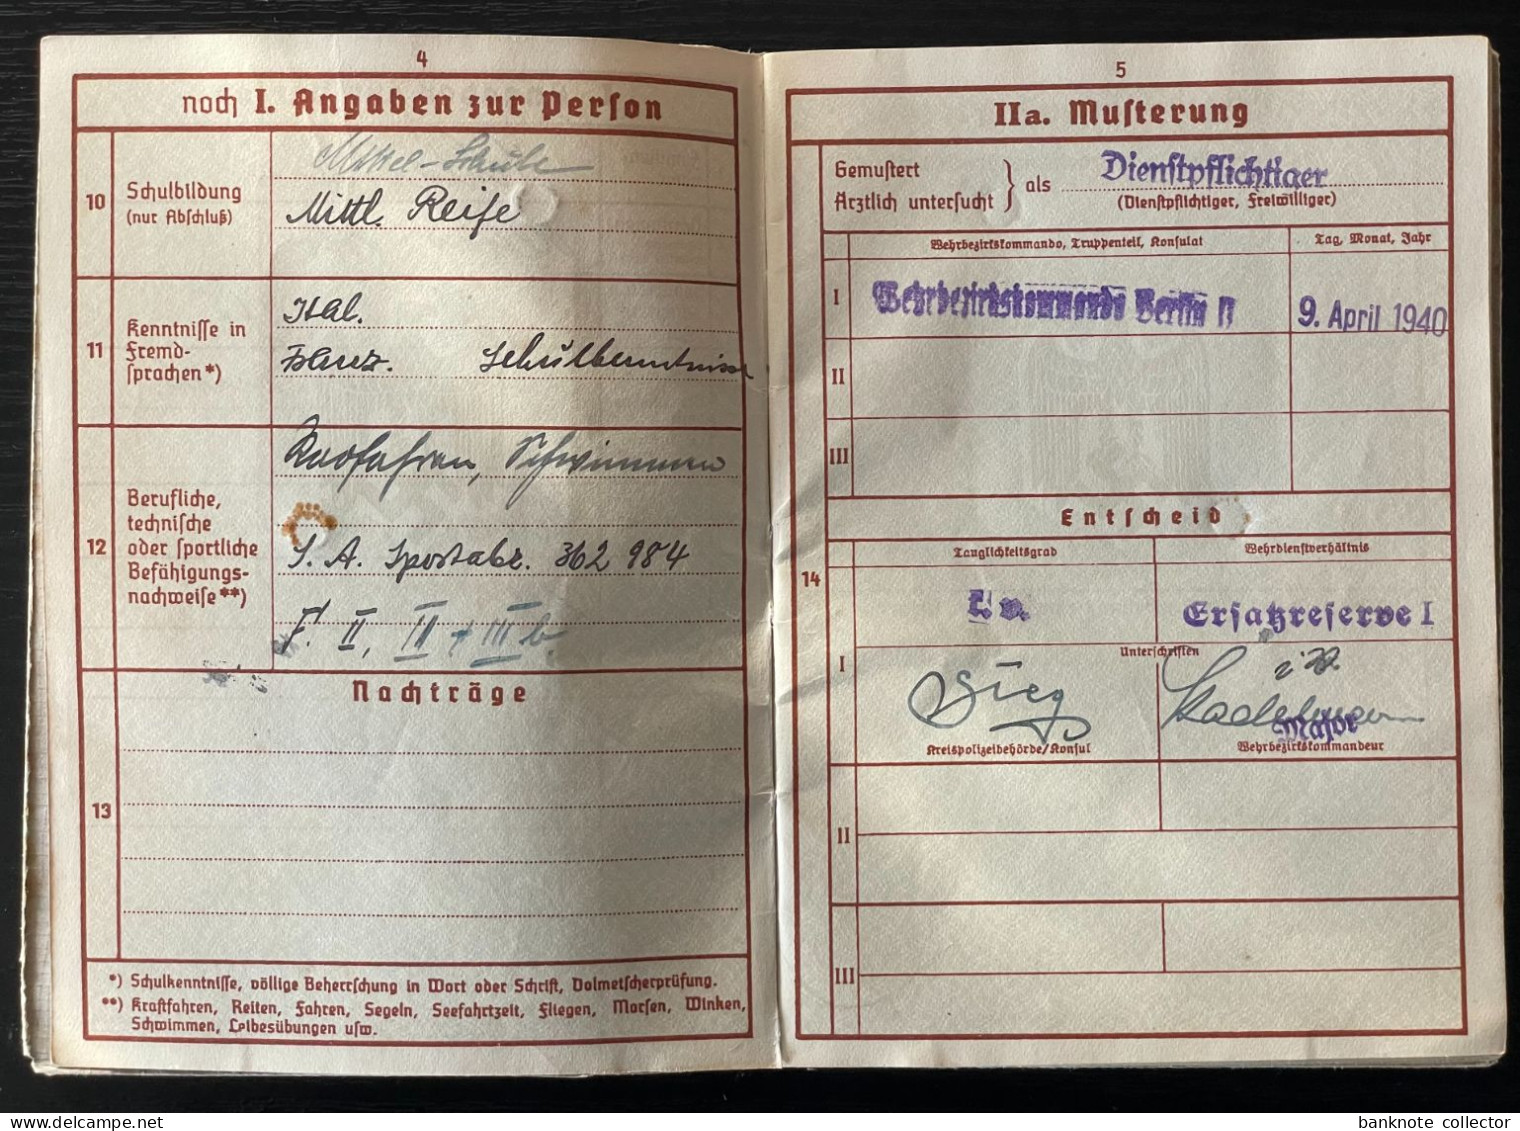 4
noch I. Angaben zur Person
10
Schulbildung
(nur Abschluß)
Mittel-Schule
Mittl. Reife
11
Kenntnisse in
Fremd-
sprachen*)
Ital.
Franz. Schulkenntnisse
12
Berufliche,
technische
oder sportliche
Befähigungs-
nachweise**)
Radfahren, Schwimmen
S. A. Sportabz. 362 984
F. II, II + III b
Nachträge
13
*) Schulkenntnisse, völlige Beherrschung in Wort oder Schrift, Dolmetscherprüfung.
**) Kraftfahren, Reiten, Fahren, Segeln, Seefahrtzeit, Fliegen, Morsen, Winken,
Schwimmen, Leibesübungen usw.
5
IIa. Musterung
Gemustert
Ärztlich untersucht
als
Dienstpflichtiger
(Dienstpflichtiger, Freiwilliger)
Wehrbezirkskommando, Truppenteil, Konsulat
Tag, Monat, Jahr
I
Wehrbezirkskommando Berlin II
9. April 1940
II
III
Entscheid
14
Tauglichkeitsgrad
Wehrdienstverhältnis
k.v.
Ersatzreserve I
I
Unterschriften
Major
Kreispolizeibehörde/Konsul
Wehrbezirkskommandeur
II
III
banknote collector